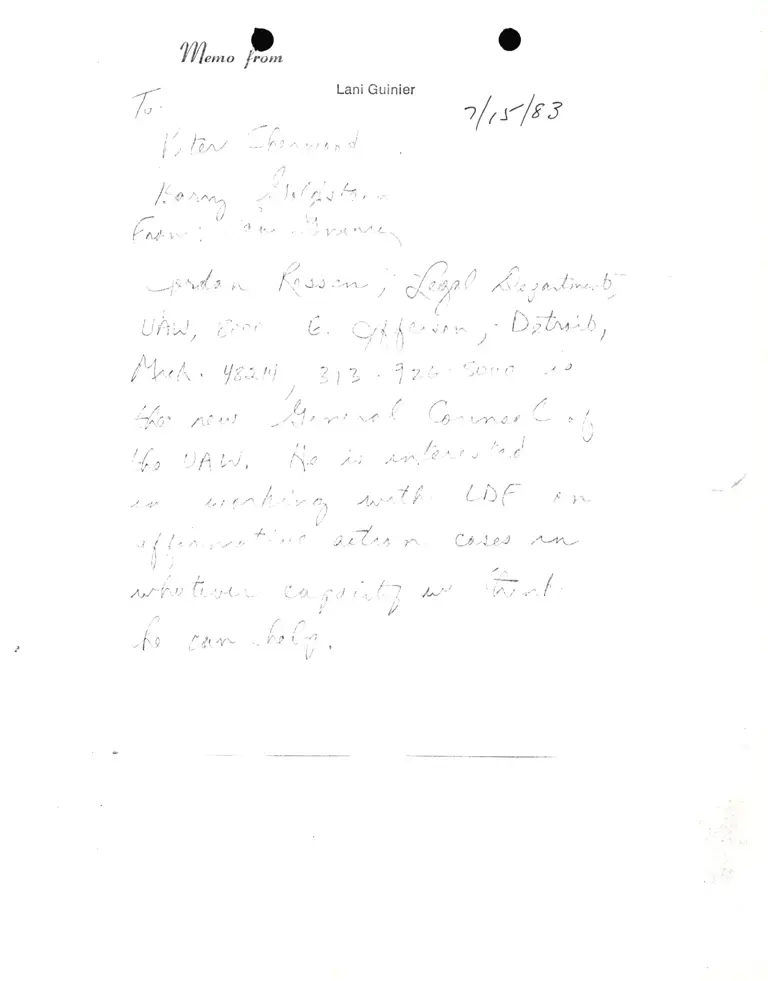 Memo from
Lani Guinier
To: 7/15/83
Peter Sherwood
Barry Goldstein
From: Lani Guinier
Jordan Rossen, Legal Department,
UAW, 8000 E. Jefferson, Detroit,
Mich. 48214, 313-926-5000 is
the new General Counsel of
the UAW. He is interested
in working with LDF on
affirmative action cases in
whatever capacity we think
he can help.